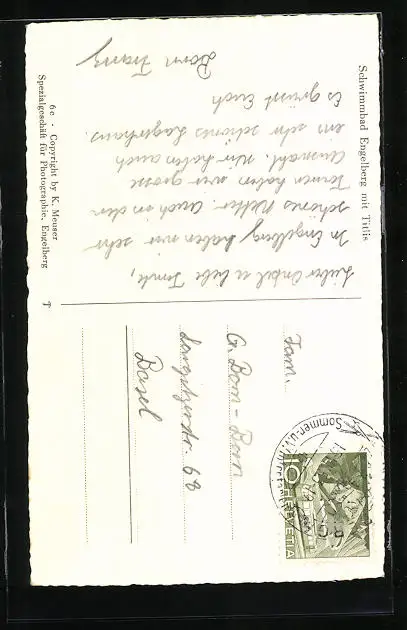 Schwimmbad Engelberg mit Titlis
Lieber Onkel u. liebe Tante,
In Engelberg haben wir sehr
schönes Wetter. Auch an den
Turnen haben wir grosse
Auswahl. Wir haben auch
ein sehr schönes Lagerhaus.
Es grüsst Euch
Born Franz
6e - Copyright by K. Meuser
Spezialgeschäft für Photographie, Engelberg
Fam.
G. Born - Born
68
Basel
10 HELVETIA
Sommer- u.